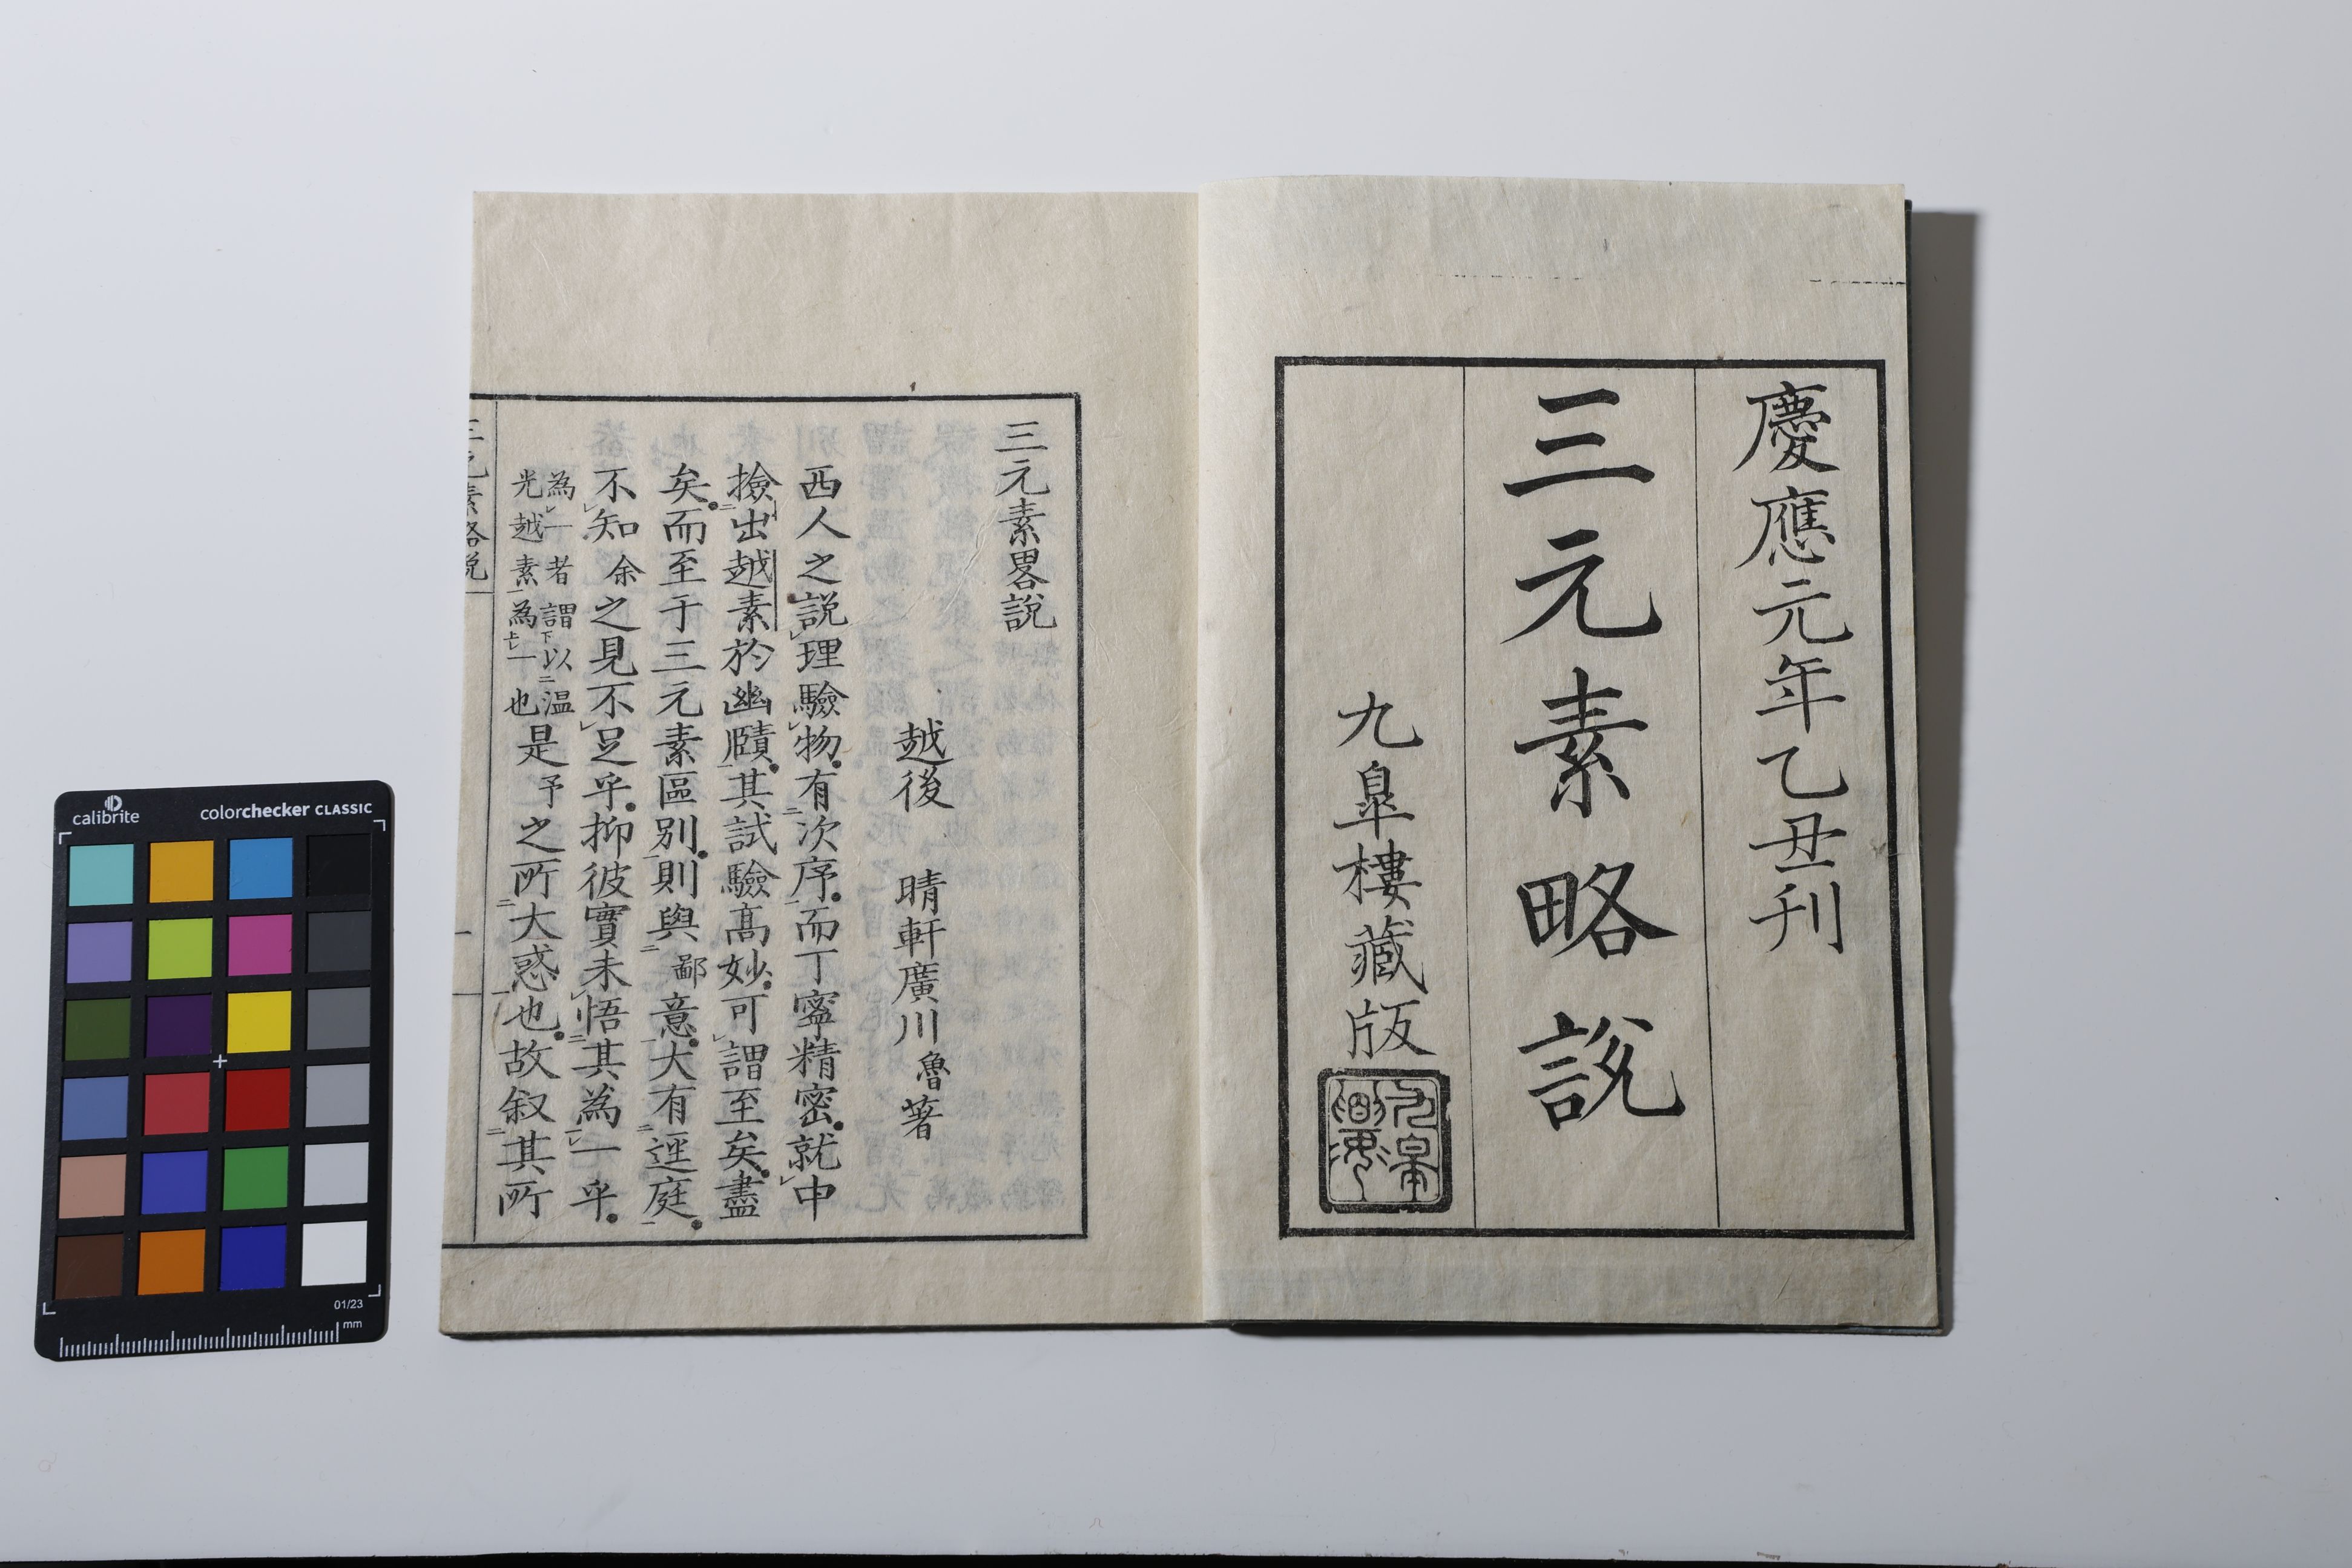 慶應元年乙丑刊
三元素略説
九皐樓藏版
三元素畧説
越後 晴軒廣川魯著
西人之説理驗物有次序而丁寧精密就中
撿出越素於幽賾其試驗髙妙可謂至矣盡
矣而至于三元素區別則與鄙意大有逕庭
不知余之見不足乎抑彼實未悟其為一乎
為一者謂以温
光越素為一也
是予之所大惑也故叙其所
三元素略説
一
calibrite
colorchecker CLASSIC
01/23
mm